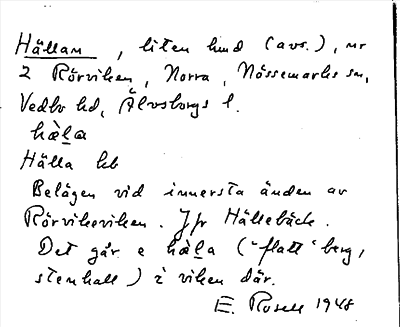 Hällan, liten lund (avs.), nr
2 Rörviken, Norra, Nössemarks sn,
Vedbo hd, Älvsborgs l.
hä̀l̲a
Hälla lb
Belägen vid innersta änden av
Rörvikeviken. Jfr Hällebäck.
Det går e hä̀l̲a ("flatt" berg,
stenhall) i viken där.
E. Rosell 1948